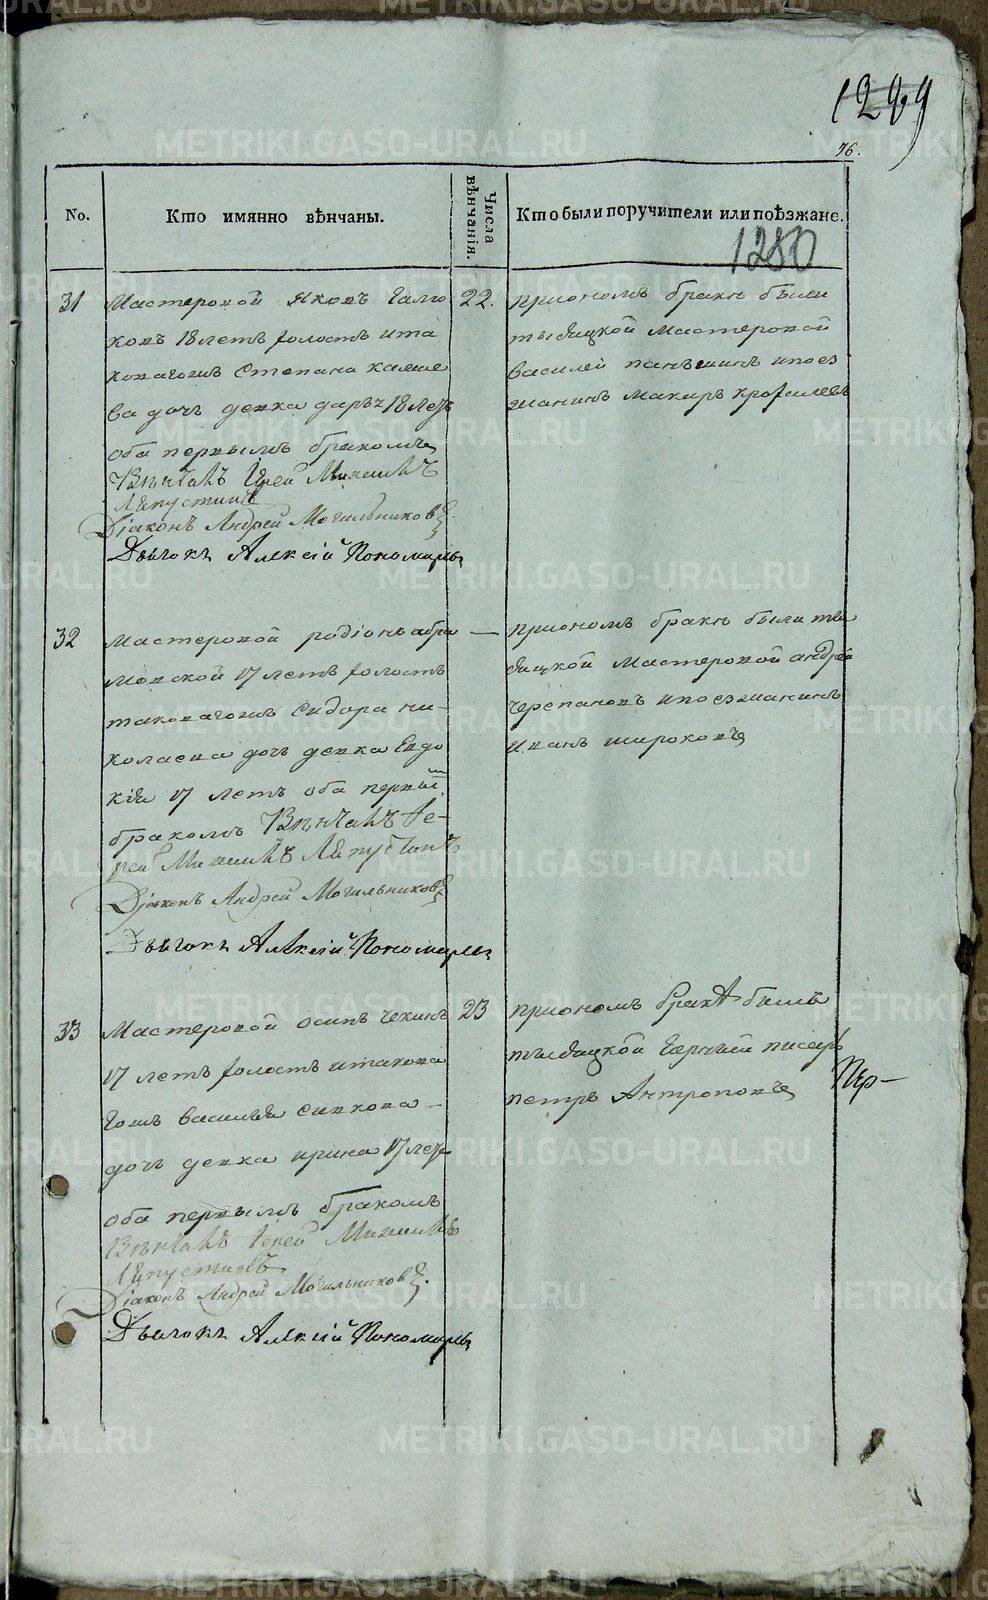 1299
76.
No.
Кто имянно вѣнчаны.
Числа вѣнчанія.
Кто были поручители или поѣзжане.
1280
31
Мастеровой яковъ галю
ковъ 18 летъ холостъ ита
ковагожъ степана
ва дочь девка дарья 18 летъ
оба первымъ бракомъ
Вѣнчалъ Іерей Михаилъ
Ляпустинъ
Діаконъ Андрей Могильниковъ
Дьячокъ Алексій Пономаревъ
22.
приономъ браке были
мастеровой
василей паньшинъ ипоез
жанинъ макаръ
32
мастеровой родіонъ абра
мовской 17 летъ холостъ
таковагожъ сидора ни-
колаева дочь девка Евдо
кія 17 летъ оба первымъ
бракомъ Вѣнчалъ Іе-
рей Михаилъ Ляпустинъ
Діаконъ Андрей Могильниковъ
Дьячокъ Алексій Пономаревъ
—
приономъ браке были
мастеровой андрей
черепановъ ипоезжанинъ
иванъ широковъ
33
Мастеровой осипъ чекинъ
17 летъ холостъ итакова
гожъ василья сивкова
дочь девка ирина 17 летъ
оба первымъ бракомъ
Вѣнчалъ Іерей Михаилъ
Ляпустинъ
Діаконъ Андрей Могильниковъ.
Дьячокъ Алексій Пономаревъ
23
приономъ браке былъ
писарь
петръ Антроповъ
METRIKI.GASO-URAL.RU